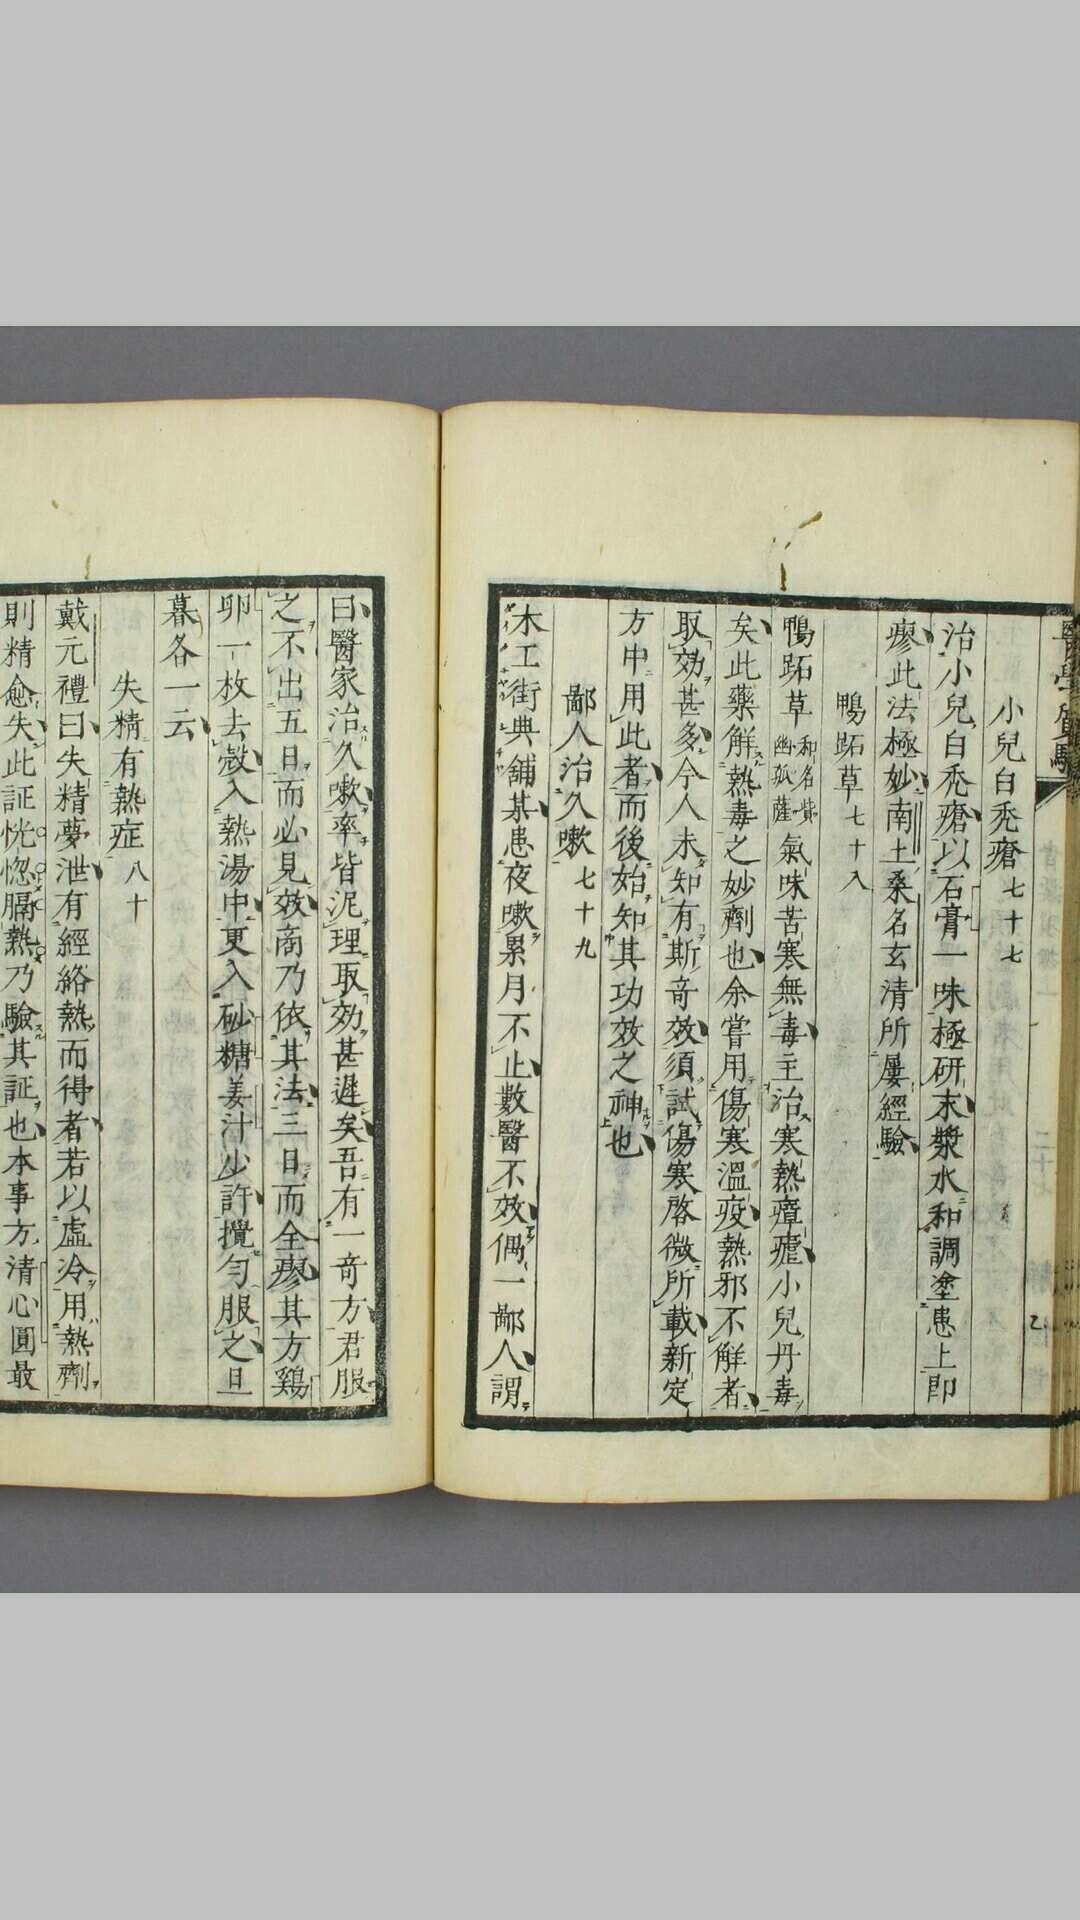 小兒白禿瘡 七十七
治小兒白禿瘡以石膏一味極研末漿水和調塗患上卽
瘳此法極妙南土桑名玄清所屢經驗
鴨跖草 七十八
鴨跖草 和名紫幽孤薩 氣味苦寒無毒主治寒熱瘴瘧小兒丹毒
矣此藥解熱毒之妙劑也余嘗用傷寒溫疫熱邪不解者
取効甚多今人未知有斯竒效須試傷寒啓微所載新定
方中用此者而後始知其功效之神也
鄙人治久嗽 七十九
木工街典舗某患夜嗽累月不止數醫不效偶一鄙人謂
曰醫家治久嗽率皆泥理取効甚遲矣吾有一竒方君服
之不出五日而必見效商乃依其法三日而全瘳其方鷄
卵一枚去殼入熱湯中更入砂糖姜汁少許攪勻服之旦
暮各一云
失精有熱症 八十
戴元禮曰失精夢泄有經絡熱而得者若以虛冷用熱劑
則精愈失此証恍惚膈熱乃驗其証也本事方清心圓最